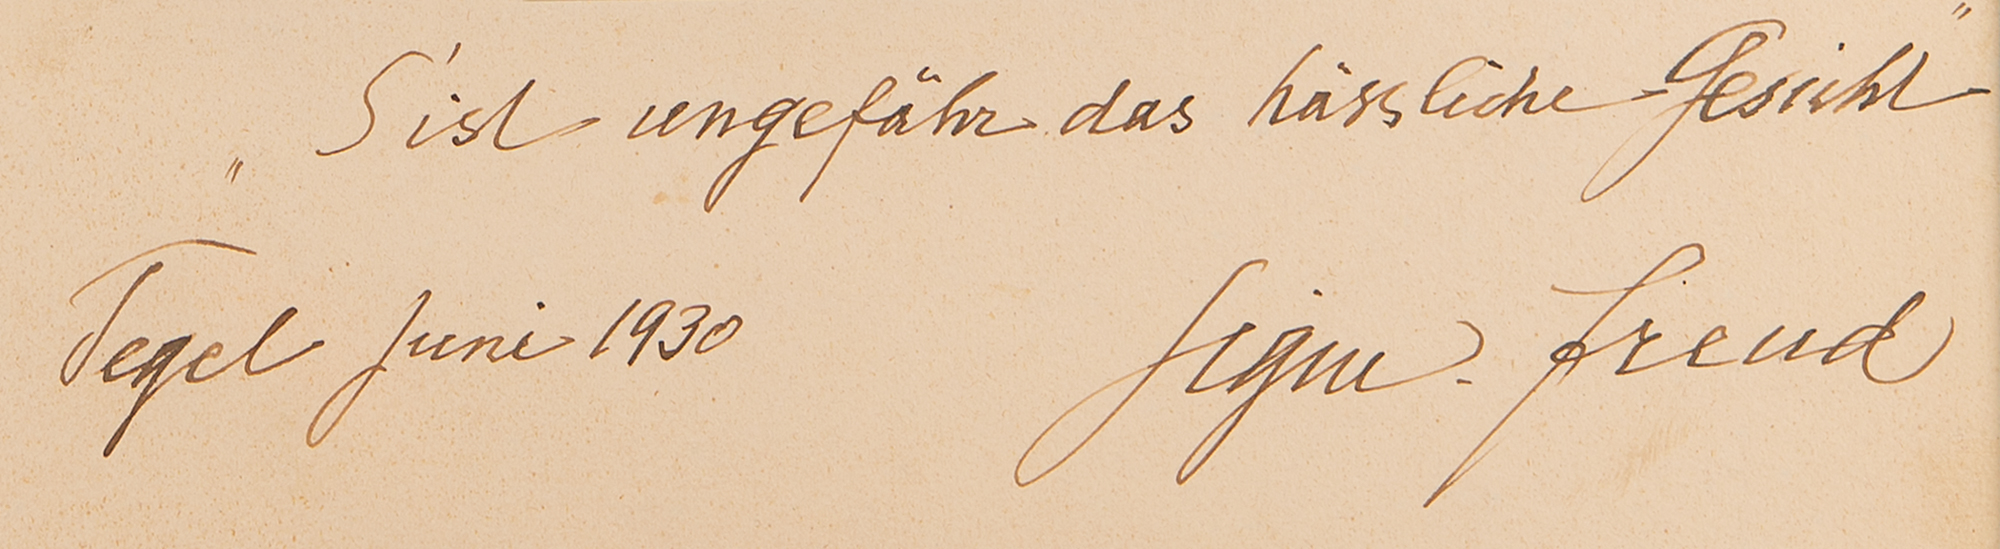 „S'ist ungefähr das hässliche Gesicht“
Tegel Juni 1930 Sigm. Freud